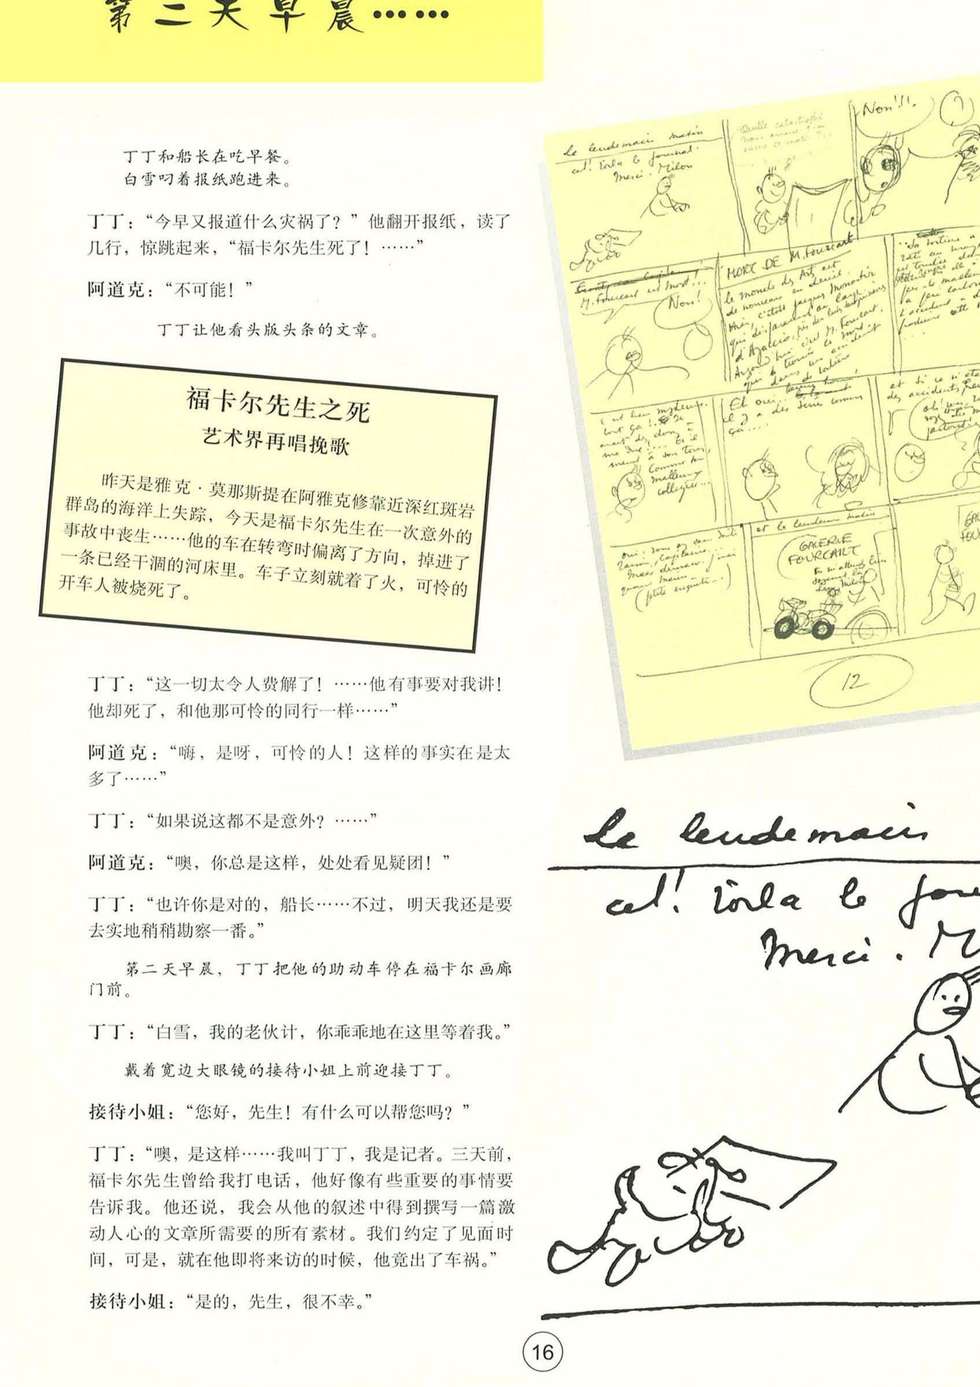 第二天早晨……
丁丁和船长在吃早餐。
白雪叼着报纸跑进来。
丁丁：“今早又报道什么灾祸了？”他翻开报纸，读了
几行，惊跳起来，“福卡尔先生死了！……”
阿道克：“不可能！”
丁丁让他看头版头条的文章。
福卡尔先生之死
艺术界再唱挽歌
昨天是雅克·莫那斯提在阿雅克修靠近深红斑岩
群岛的海洋上失踪，今天是福卡尔先生在一次意外的
事故中丧生……他的车在转弯时偏离了方向，掉进了
一条已经干涸的河床里。车子立刻就着了火，可怜的
开车人被烧死了。
丁丁：“这一切太令人费解了！……他有事要对我讲！
他却死了，和他那可怜的同行一样……”
阿道克：“嗨，是呀，可怜的人！这样的事实在是太
多了……”
丁丁：“如果说这都不是意外？……”
阿道克：“噢，你总是这样，处处看见疑团！”
丁丁：“也许你是对的，船长……不过，明天我还是要
去实地稍稍勘察一番。”
第二天早晨，丁丁把他的助动车停在福卡尔画廊
门前。
丁丁：“白雪，我的老伙计，你乖乖地在这里等着我。”
戴着宽边大眼镜的接待小姐上前迎接丁丁。
接待小姐：“您好，先生！有什么可以帮您吗？”
丁丁：“噢，是这样……我叫丁丁，我是记者。三天前，
福卡尔先生曾给我打电话，他好像有些重要的事情要
告诉我。他还说，我会从他的叙述中得到撰写一篇激
动人心的文章所需要的所有素材。我们约定了见面时
间，可是，就在他即将来访的时候，他竟出了车祸。”
接待小姐：“是的，先生，很不幸。”
Le lendemain matin
Voilà le journal.
Merci. Milou
Non!!!
M. Fourcart est mort...
Non!
MORT DE M. FOURCART
Le monde des Arts est
de nouveau en deuil.
et le lendemain matin
GALERIE
FOURCART
12
Le lendemain
Voilà le
Merci.
16